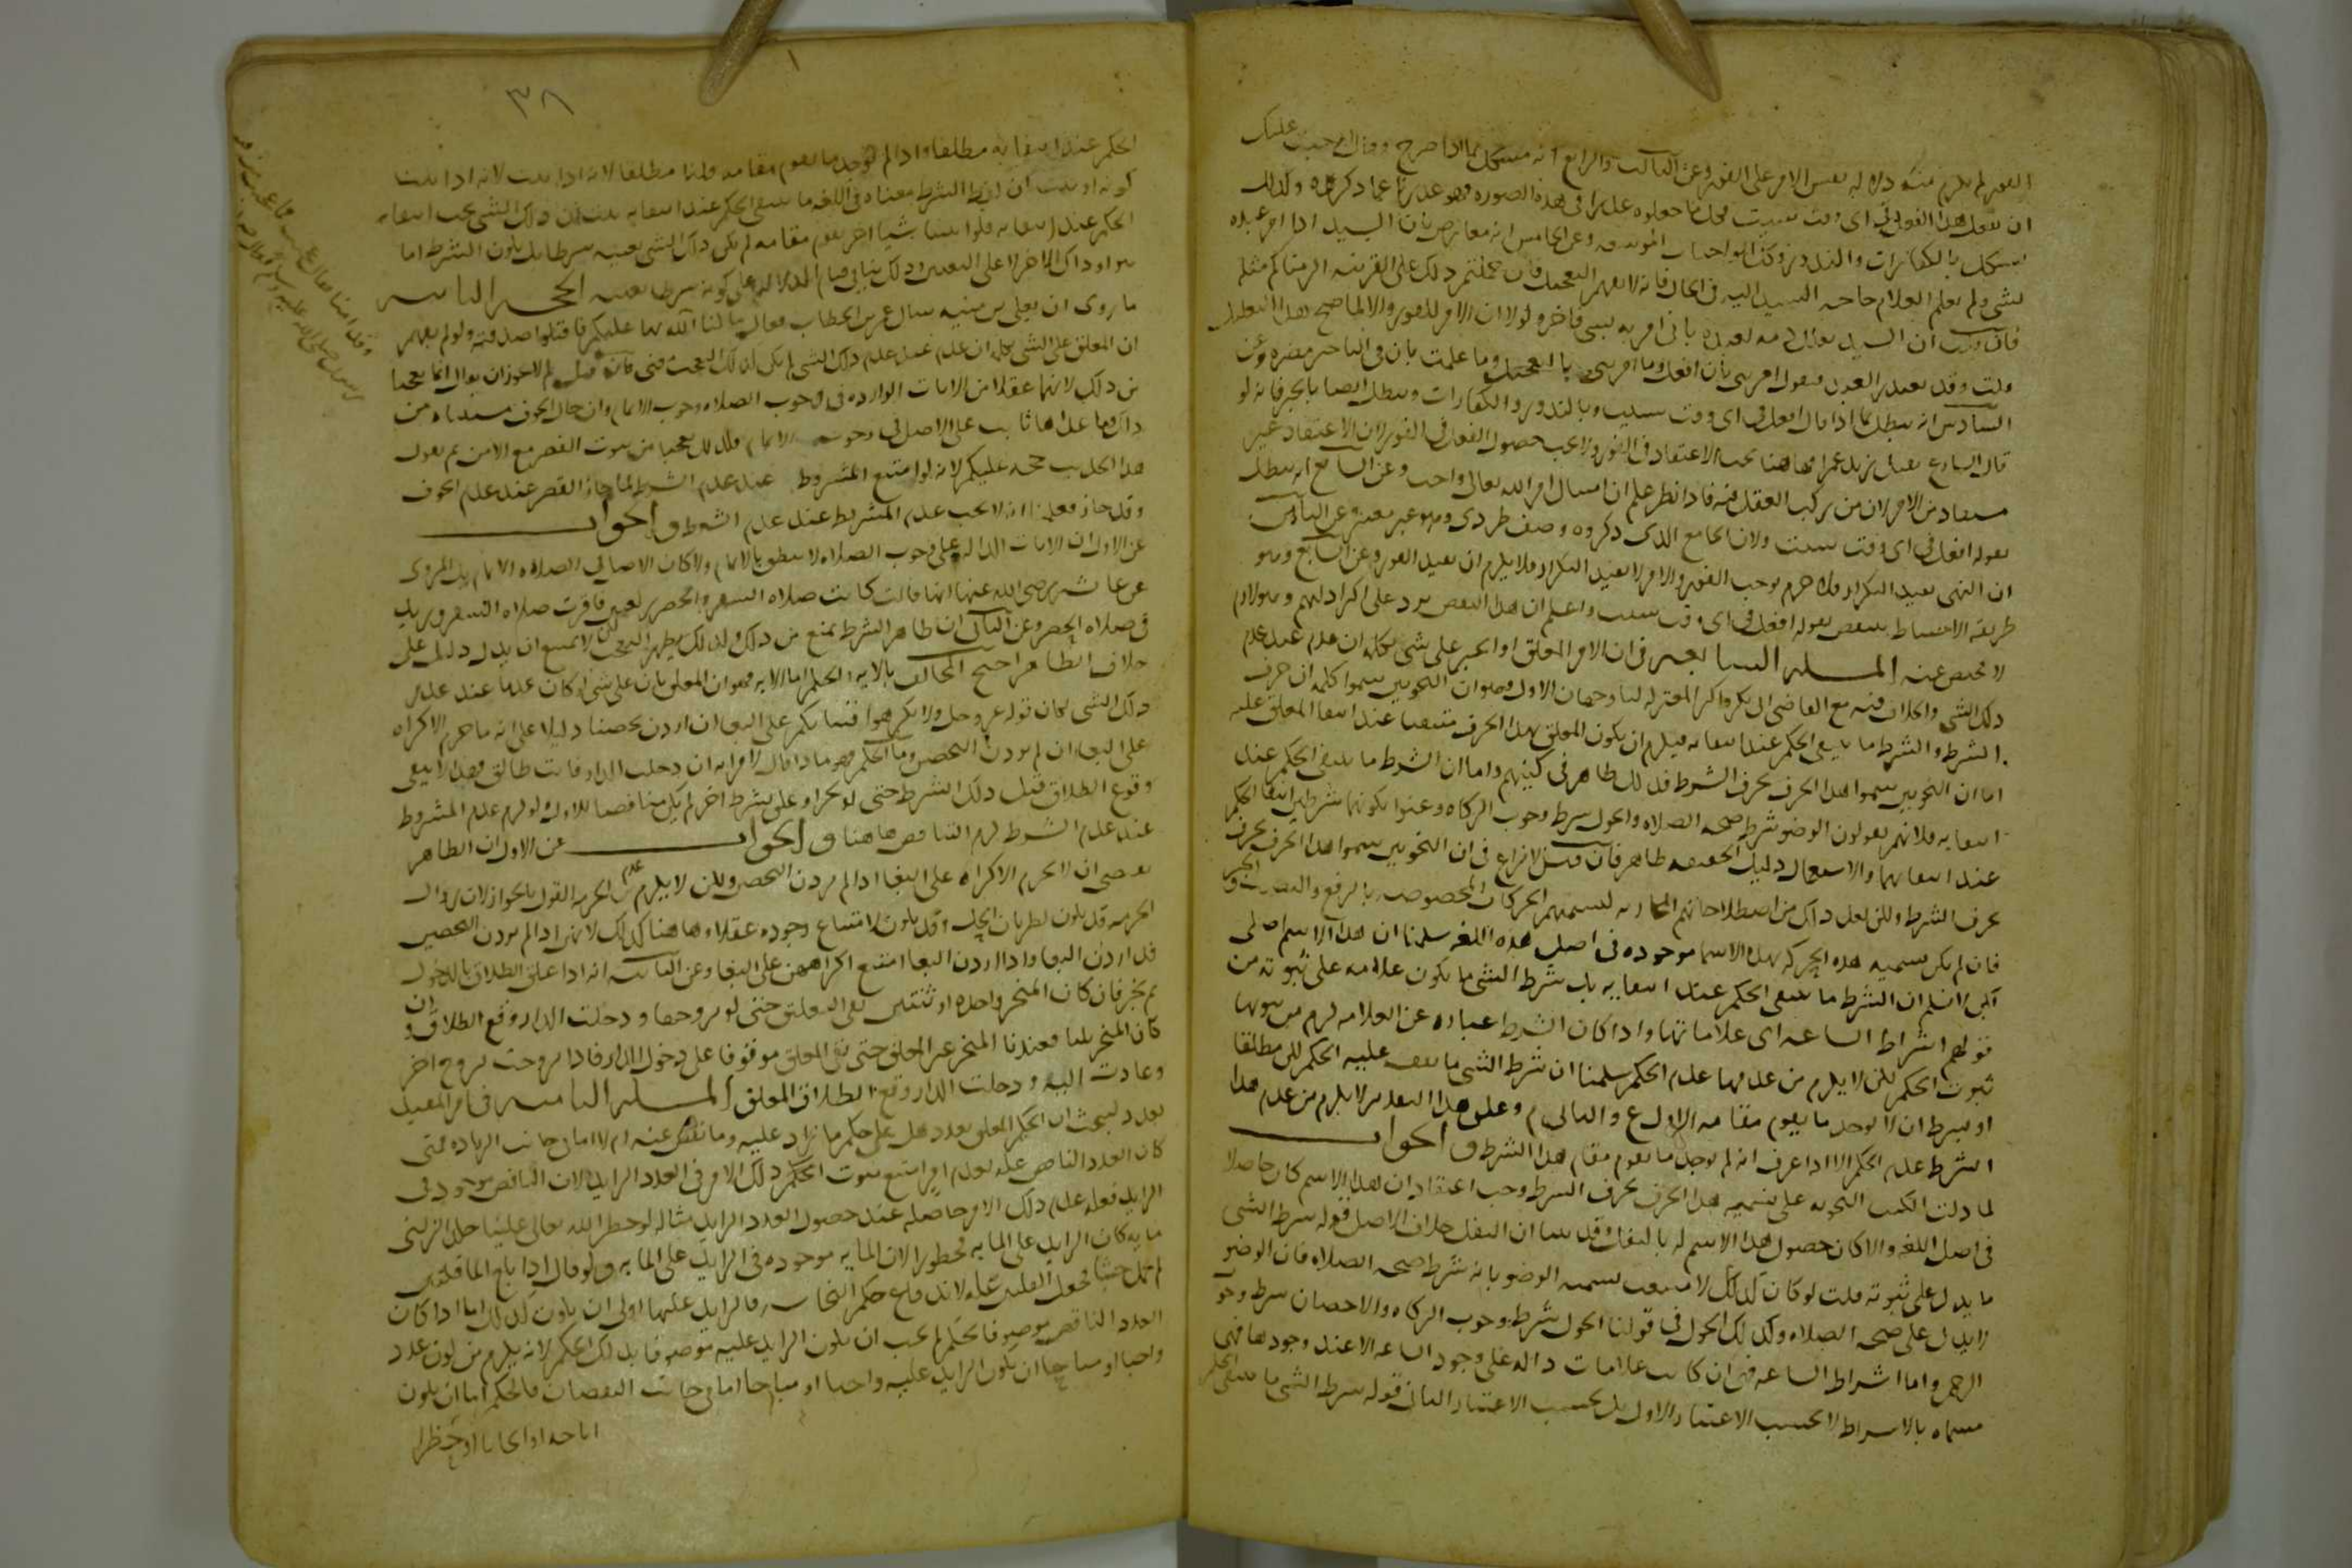 الفور لم يلزم منه دلاله نفس الامر على الفور وعن الثالث والرابع انه مشكل بما اذا صرح وقال اوجبت عليك
ان تفعل هذا الفعل في اى وقت شيت فكل ما جعلوه عذرا فى هذه الصوره فهو عذرنا عما ذكرتموه وكذلك
يشكل بالكفارات والنذور وكثير الواجبات الموسعه وعن الخامس انه معارض بان السيد اذا امر عبده
بشى ولم يعلم العلام حاجه السيد اليه فى الحال فانه لا يفهم التعجيل فان حملتم ذلك على القرينه الزمناكم مثله
فان قلت ان السيد يعلل ذمه لعبده بانى امرته بشى فاخره ولولا ان الامر للفور والا لما صح هذا التعليل
قلت وقد يعتذر العبد فيقول امرنى بان افعل وما امرنى بالتعجيل وما علمت بان فى التاخير مضره وعن
السادس انه يبطل بما اذا قال افعل فى اى وقت شيت وبالنذور والكفارات ويبطل ايضا بالخبر فانه لو
قال الشارع يقتل زيد عمرا فهاهنا يجب الاعتقاد فى الفور ولا يجب حصول الفعل فى الفور لان الاعتقاد غير
مستفاد من الامر لان من تركب العقل فيه فاذا نظر علم ان امتثال امر الله تعالى واجب وعن السابع انه يبطل
بقوله افعل فى اى وقت شيت ولان الجامع الذى ذكروه وصف طردى وهو غير معتبر وعن الثامن
ان النهى يفيد التكرار فلا جرم يوجب الفور والامر لا يفيد التكرار فلا يلزم ان يفيد الفور وعن التاسع وهو
طريقه الاحتياط ينتقض بقوله افعل فى اى وقت شيت واعلم ان هذا النقض يرد على اكثر ادلتهم وهو لازم
لا محيص عنه المسله السابعه فى ان الامر المعلق او الخبر على شى بكلمه ان عدم عند عدم
ذلك الشى والخلاف فيه مع القاضى ابى بكر واكثر المعتزله لنا وجهان الاول وهو ان النحويين سموا كلمه ان حرف
الشرط والشرط ما ينتفى الحكم عند انتفايه فيلزم ان يكون المعلق بهذا الحرف منتفيا عند انتفا المعلق عليه
اما ان النحويين سموا هذا الحرف بحرف الشرط فذلك ظاهر فى كتبهم واما ان الشرط ما ينتفى الحكم عند
انتفايه فلانهم يقولون الوضو شرط صحه الصلاه والحول شرط وجوب الزكاه وعنوا بكونهما شرطين انتفا الحكم
عند انتفايهما والاستعمال دليل الحقيقه ظاهرا فان قيل لا نزاع فى ان النحويين سموا هذا الحرف بحرف
بحرف الشرط ولكن لعل ذلك من اصطلاحاتهم الحادثه كتسميتهم الحركات المخصوصه بالرفع والنصب والجر
فان لم يكن تسميه هذه الحركه بهذه الاسما موجوده فى اصل هذه اللغه سلمنا ان هذا الاسم اصلى
لكن لا نسلم ان الشرط ما ينتفى الحكم عند انتفايه بل شرط الشى ما يكون علامه على ثبوته من
قولهم اشراط الساعه اى علاماتها واذا كان الشرط عباره عن العلامه لزم من ثبوتها
ثبوت الحكم لكن لا يلزم من عدمها عدم الحكم سلمنا ان شرط الشى ما يقف عليه الحكم لكن مطلقا
او بشرط ان لا يوجد ما يقوم مقامه الاول ع والثانى م وعلى هذا التقدير لا يلزم من عدم هذا
الشرط عدم الحكم الا اذا عرف انه لم يوجد ما يقوم مقام هذا الشرط والجواب
لما دلت الكتب النحويه على تسميه هذا الحرف بحرف الشرط وجب اعتقاد ان هذا الاسم كان حاصلا
فى اصل اللغه والا كان حصول هذا الاسم له بالنقل وقد بينا ان النقل خلاف الاصل قوله شرط الشى
ما يدل على ثبوته قلت لو كان كذلك لامتنعت تسميه الوضو بانه شرط صحه الصلاه فان الوضو
لا يدل على صحه الصلاه وكذلك الحول فى قولنا الحول شرط وجوب الزكاه والاحصان شرط وجوب
الرجم واما اشراط الساعه فهى ان كانت علامات داله على وجود الساعه الا عند وجودها فهى
مسماه بالاشراط لا بحسب الاعتبار الاول بل بحسب الاعتبار الثانى قوله شرط الشى ما ينتفى الحكم
٣٨
الحكم عند انتفايه مطلقا او اذا لم يوجد ما يقوم مقامه قلنا مطلقا لانه اذا ثبت لانه اذا ثبت
كونه او ثبت ان لفظ الشرط معناه فى اللغه ما ينتفى الحكم عند انتفايه ثبت ان ذلك الشى يجب انتفا
الحكم عند انتفايه فلو اثبتنا شيا اخر يقوم مقامه لم يكن ذلك الشى بعينه شرطا بل يكون الشرط اما
هو او ذلك الاخر لا على التعيين وذلك ينافى قيام الدلاله على كونه شرطا بعينه الحجه الثانيه
ما روى ان يعلى بن منيه سال عمر بن الخطاب فقال ما لنا
ان المعلق على الشى بكلمه ان عدم عند عدم ذلك الشى لم يكن لذلك التعجب معنى فان قيل لم لا يجوز ان يقال انما تعجبا
من ذلك لانهما عقلا من الايات الوارده فى وجوب الصلاه وجوب الاتمام وان حال الخوف مستثناه من
ذلك وما عداها ثابت على الاصل فى وجوب الاتمام فلذلك تعجبا من ثبوت القصر مع الامن ثم نقول
هذا الحديث حجه عليكم لانه لو امتنع المشروط عند عدم الشرط لما جاز القصر عند عدم الخوف
وقد جاز فعلمنا انه لا يجب عدم المشروط عند عدم الشرط والجواب
عن الاول ان الايات الداله على وجوب الصلاه لا تنطق بالاتمام ولا كان الاصل فى الصلاه الاتمام بل المروى
عن عايشه رضى الله عنها انها قالت كانت صلاه السفر والحضر ركعتين فاقرت صلاه السفر وزيد
فى صلاه الحضر وعن الثانى ان ظاهر الشرط يمنع من ذلك ولذلك ظهر التعجب لكن لا يمتنع ان يدل دليل على
خلاف الظاهر احتج المخالف بالايه والحكم اما الايه فهو ان المعلق بان على شى لو كان عدما عند عدم
ذلك الشى لكان قوله عز وجل ولا تكرهوا فتياتكم على البغا ان اردن تحصنا دليلا على انه ما حرم الاكراه
على البغا ان لم يردن التحصن واما الحكم فهو ما اذا قال لامراته ان دخلت الدار فانت طالق فهذا لا ينفى
وقوع الطلاق قبل ذلك الشرط حتى لو نجز او علق بشرط اخر لم يكن مناقضا للاول ولو لزم عدم المشروط
عند عدم الشرط لزم التناقض هاهنا والجواب عن الاول ان الظاهر
يقتضى ان لا يحرم الاكراه على البغا اذا لم يردن التحصن ولكن لا يلزم من عدم الحرمه القول بالجواز لان زوال
الحرمه قد يكون لطريان الحل وقد يكون لامتناع وجوده عقلا وهاهنا كذلك لانهن اذا لم يردن التحصن
فقد اردن البغا واذا اردن البغا امتنع اكراههن على البغا وعن الثانى انه اذا علق الطلاق بالدخول
ثم نجز فان كان المنجز واحده او ثنتين بقى التعليق حتى لو تزوجها ودخلت الدار وقع الطلاق وان
كان المنجز ثلثا فعندنا المنجز غير المعلق حتى بقى المعلق موقوفا على دخول الدار فاذا تزوجت بزوج اخر
وعادت اليه ودخلت الدار وقع الطلاق المعلق المسله الثامنه فى الامر المقيد
بعدد نبحث ان الحكم المعلق بعدد هل يدل على حكم ما زاد عليه وما نقص عنه ام لا اما فى جانب الزياده فمتى
كان العدد الناقص عله لعدم امر امتنع ثبوت الحكم ذلك الامر فى العدد الزايد لان الناقص موجود فى
الزايد فعله عدم ذلك الامر حاصله عند حصول العدد الزايد مثاله لو حظر الله تعالى علينا جلد الزانى
مايه كان الزايد على المايه محظورا لان المايه موجوده فى الزايد على المايه ولو قال اذا بلغ الما قلتين
لم يحمل خبثا فجعل القلتين عله لاندفاع حكم النجاسه فالزايد عليهما اولى ان يكون كذلك اما اذا كان
العدد الناقص موصوفا بحكم لم يجب ان يكون الزايد عليه موصوفا بذلك الحكم لانه لا يلزم من كون عدد
واجبا او مباحا ان يكون الزايد عليه واجبا او مباحا اما فى جانب النقصان فالحكم اما ان يكون
اباحه او ايجابا او حظرا